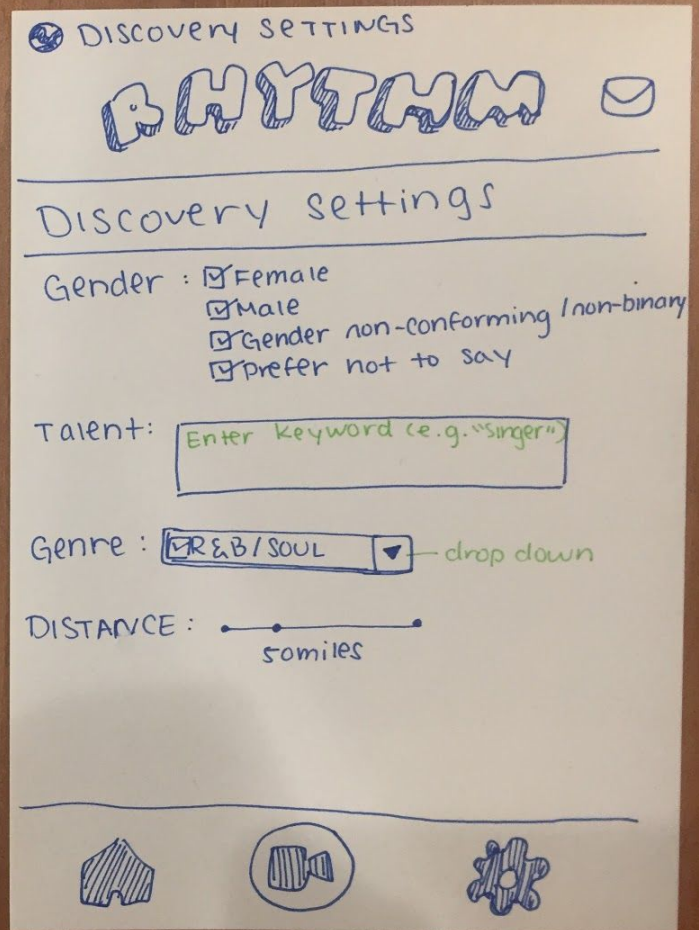 DISCOVERY SETTINGS
RHYTHM
Discovery settings
Gender : Female
Male
Gender non-conforming /non-binary
Prefer not to say
Talent:
Enter keyword (e.g. "singer")
Genre : R&B/SOUL
drop down
DISTANCE :
50miles